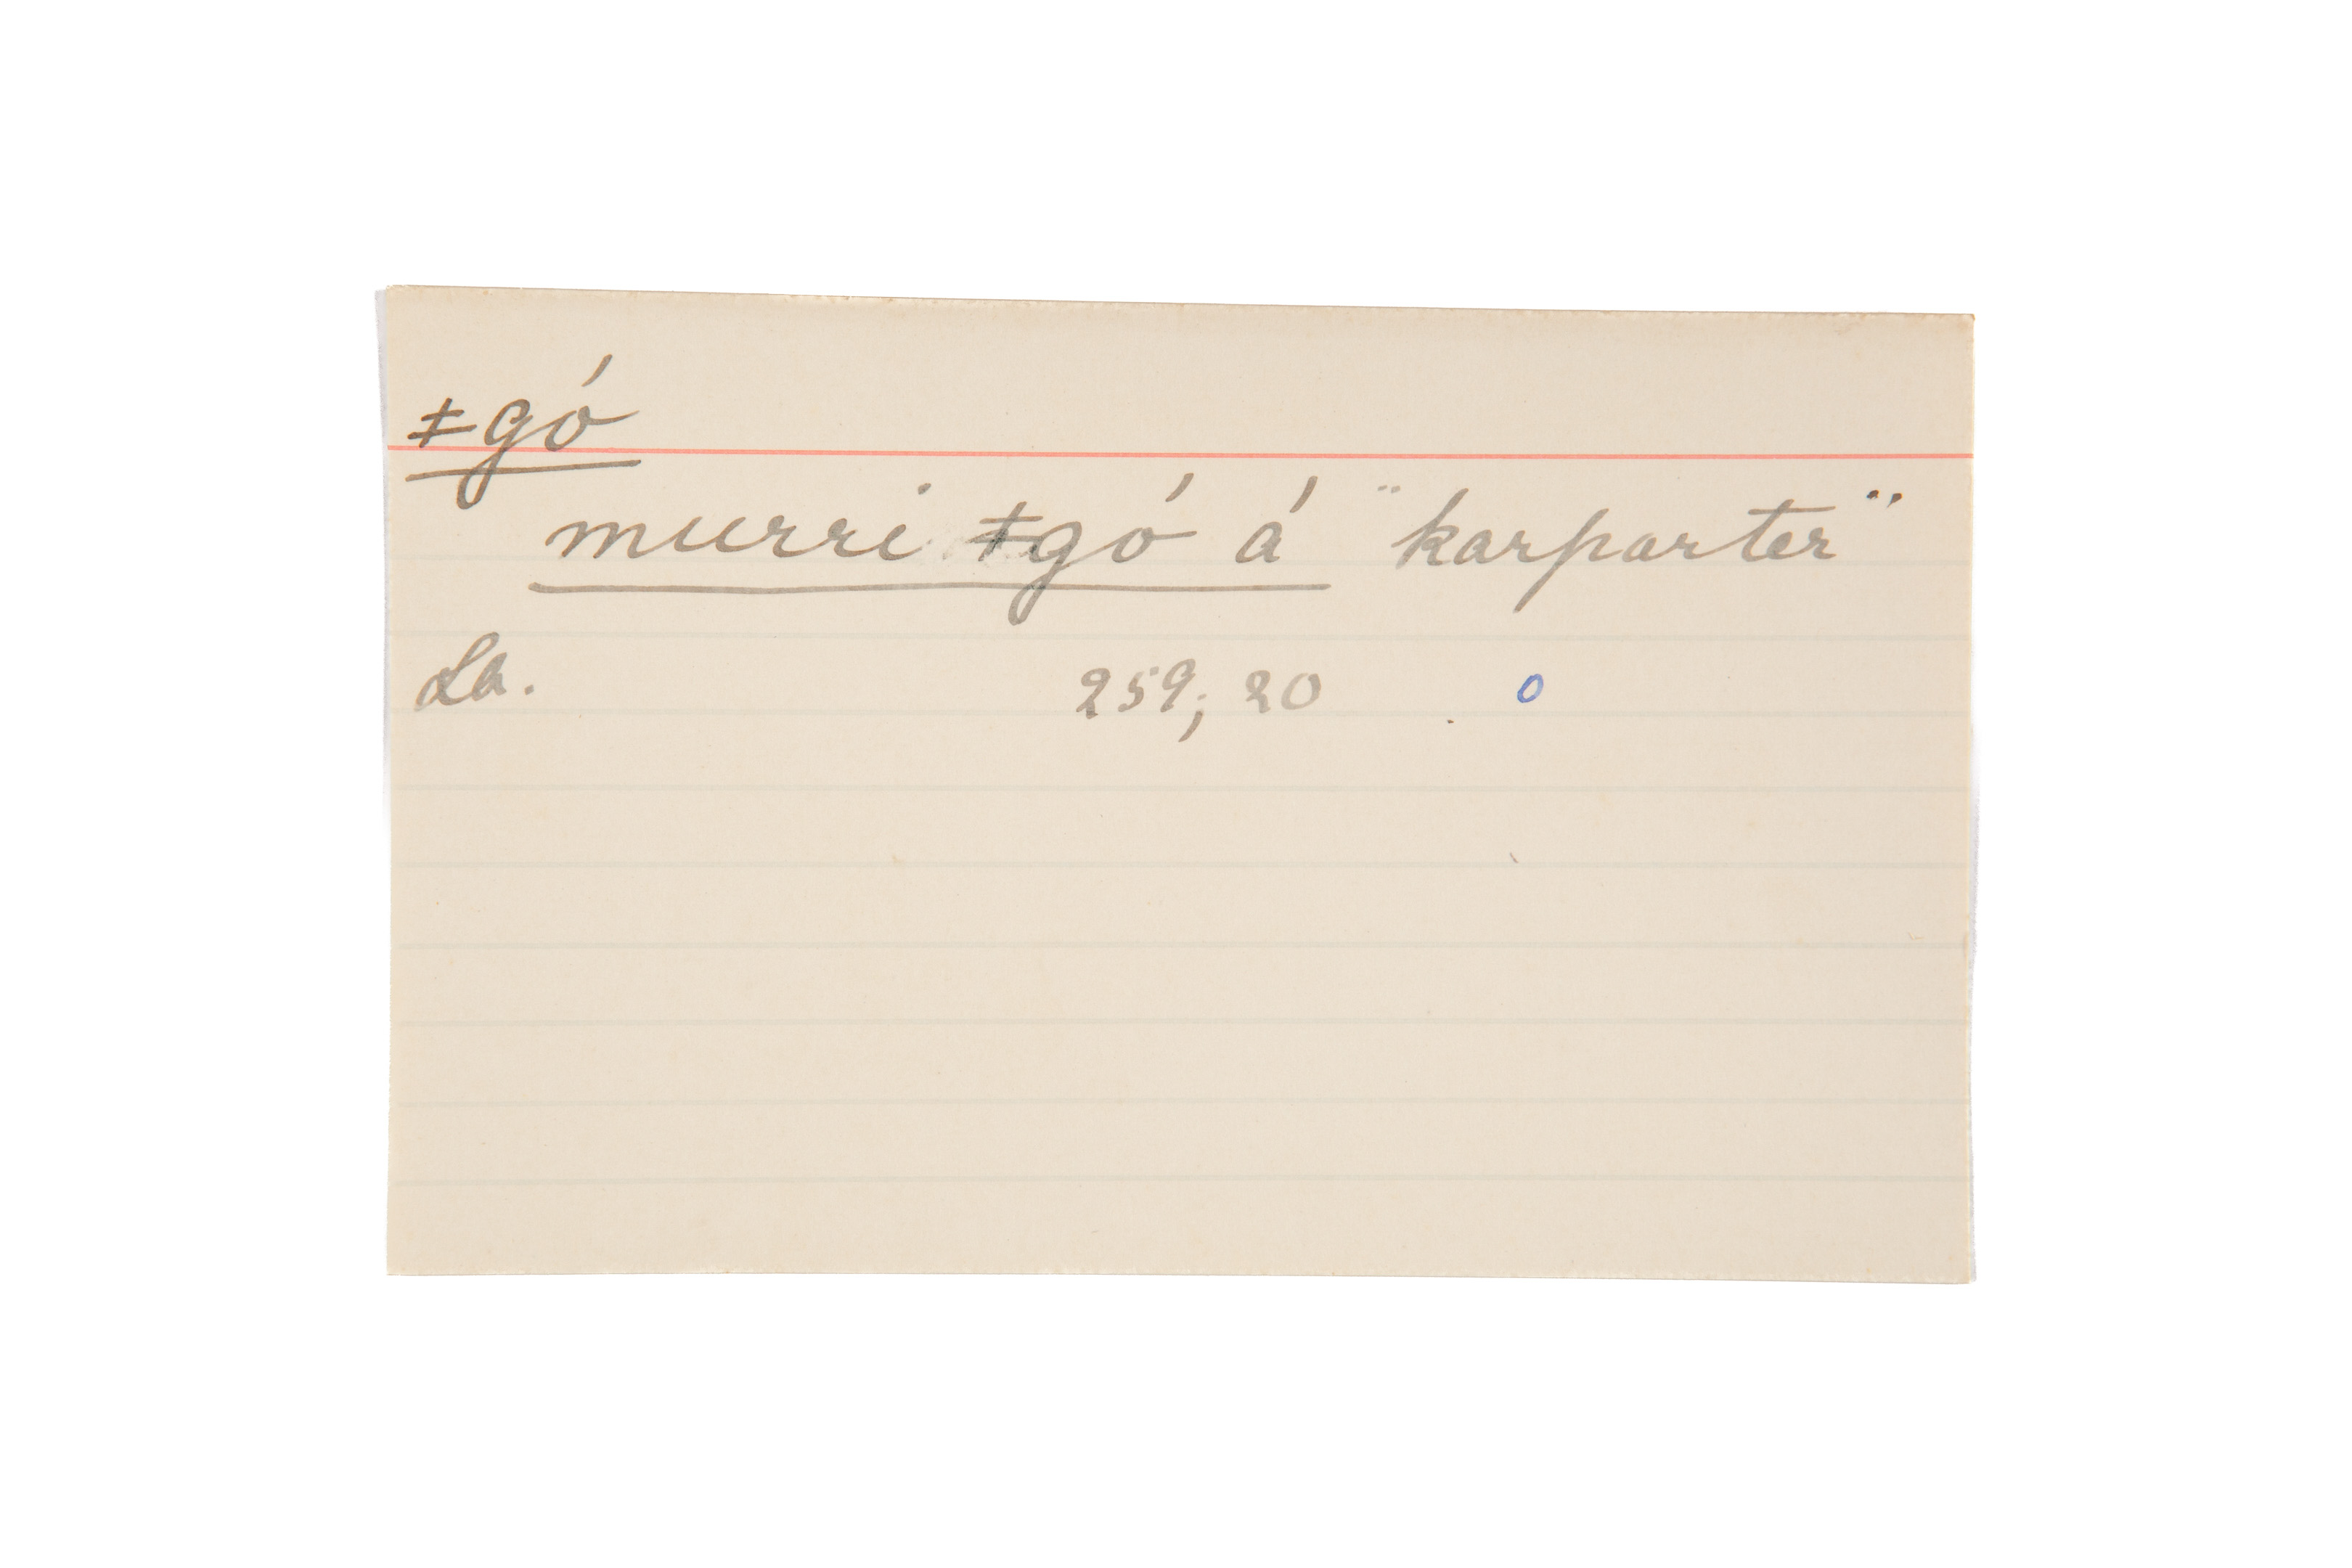 ǂgó
murri ǂgó á "karparter"
La. 259; 20 o